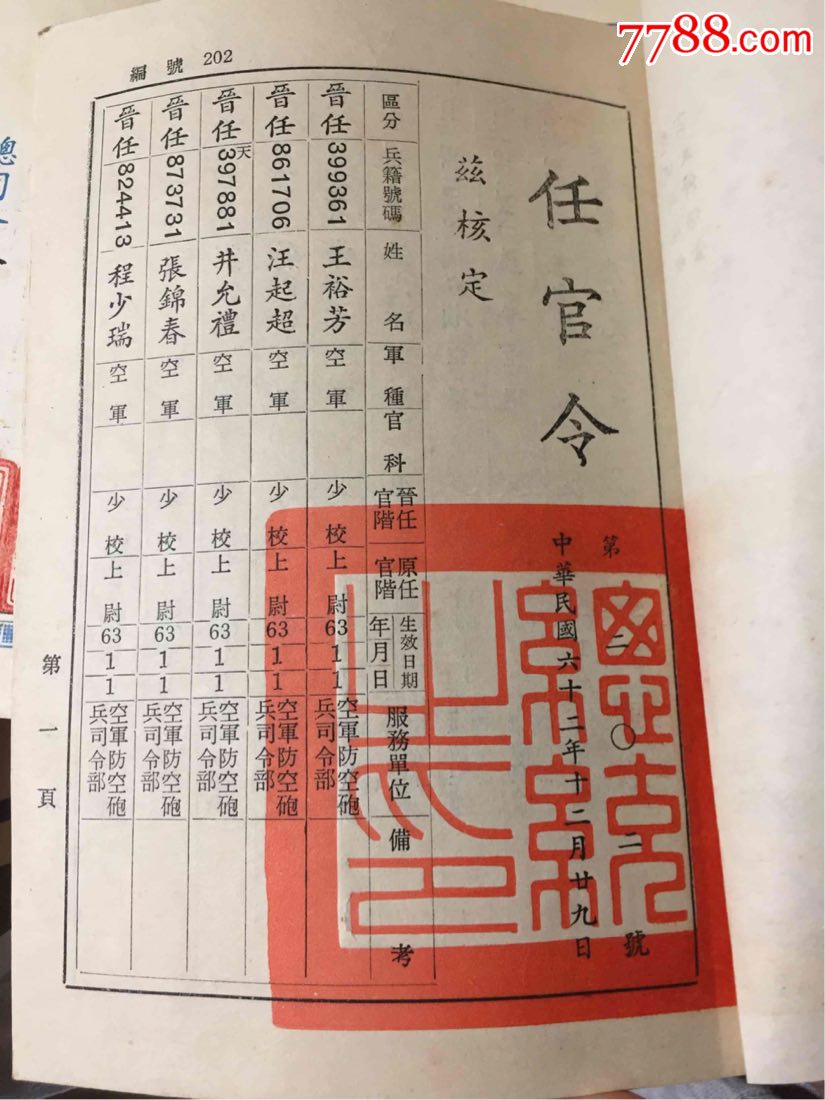 7788.com
編號 202
任官令
第二〇二號
中華民國六十二年十二月廿九日
茲核定
區分 兵籍號碼 姓名 軍種 官科 晉任官階 原任官階 生效日期 年月日 服務單位 備考
晉任 399361 王裕芳 空軍 少校 上尉 63 1 1 空軍防空砲兵司令部
晉任 861706 汪起超 空軍 少校 上尉 63 1 1 空軍防空砲兵司令部
晉任 天397881 井允禮 空軍 少校 上尉 63 1 1 空軍防空砲兵司令部
晉任 873731 張錦春 空軍 少校 上尉 63 1 1 空軍防空砲兵司令部
晉任 824413 程少瑞 空軍 少校 上尉 63 1 1 空軍防空砲兵司令部
第一頁
總司令